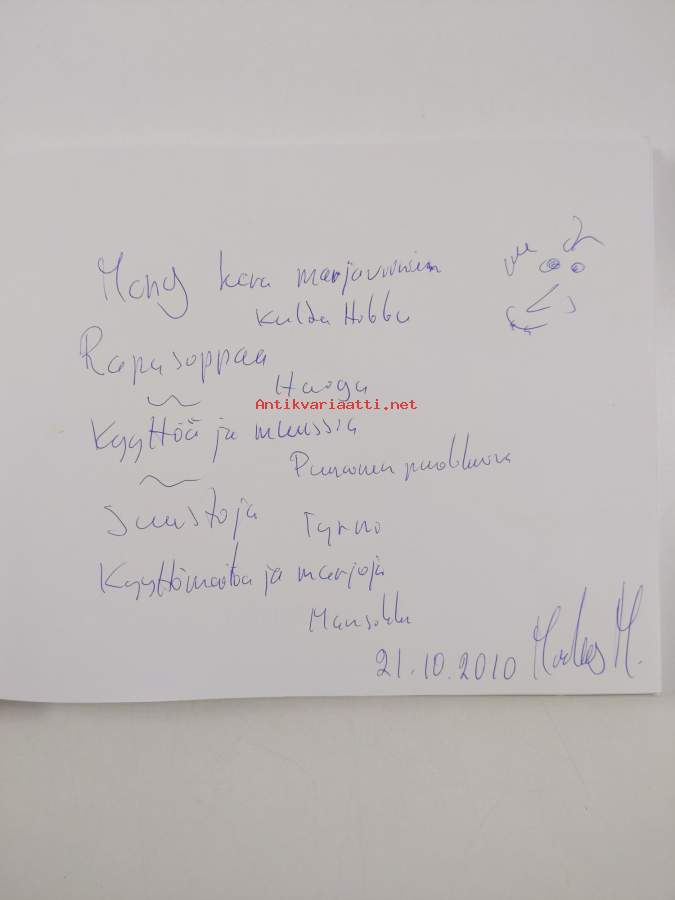 kera marjaviinien
Kulta Hubbu
Rapusoppaa
Haaga
Antikvariaatti.net
Kyyttöä ja muussia
Punainen
Juustoja
Tyrno
Kyyttömaitoa ja marjoja
Mansikka
21.10.2010 M.